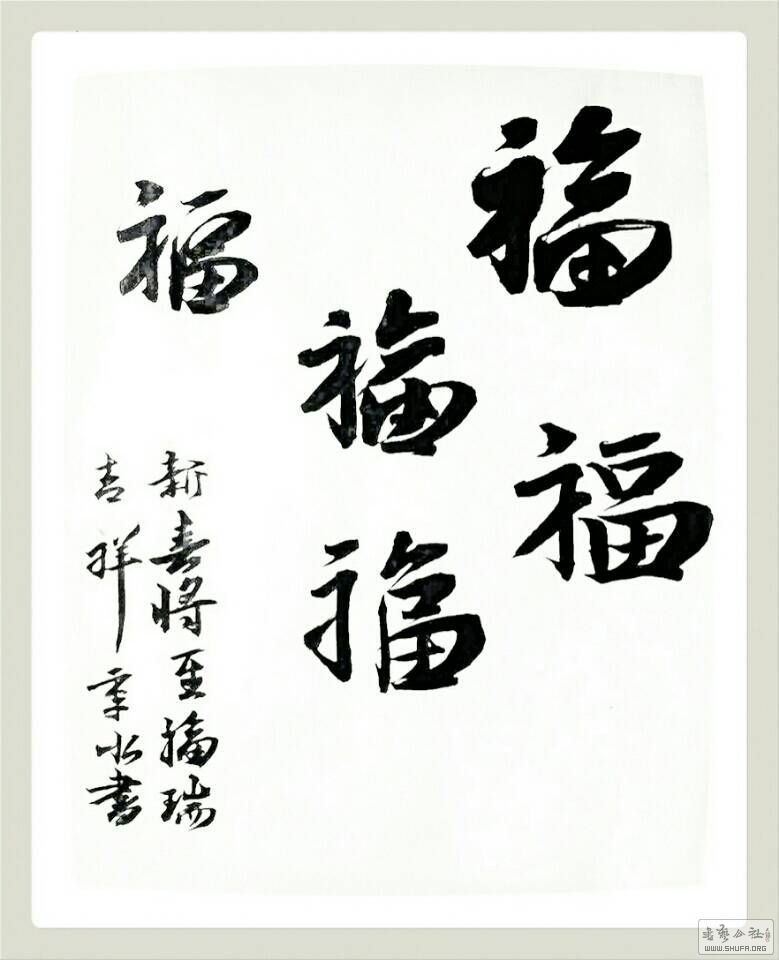 福
福
福
福
福
新春将至福瑞
吉祥 季水書
書藝公社
WWW.SHUFA.ORG